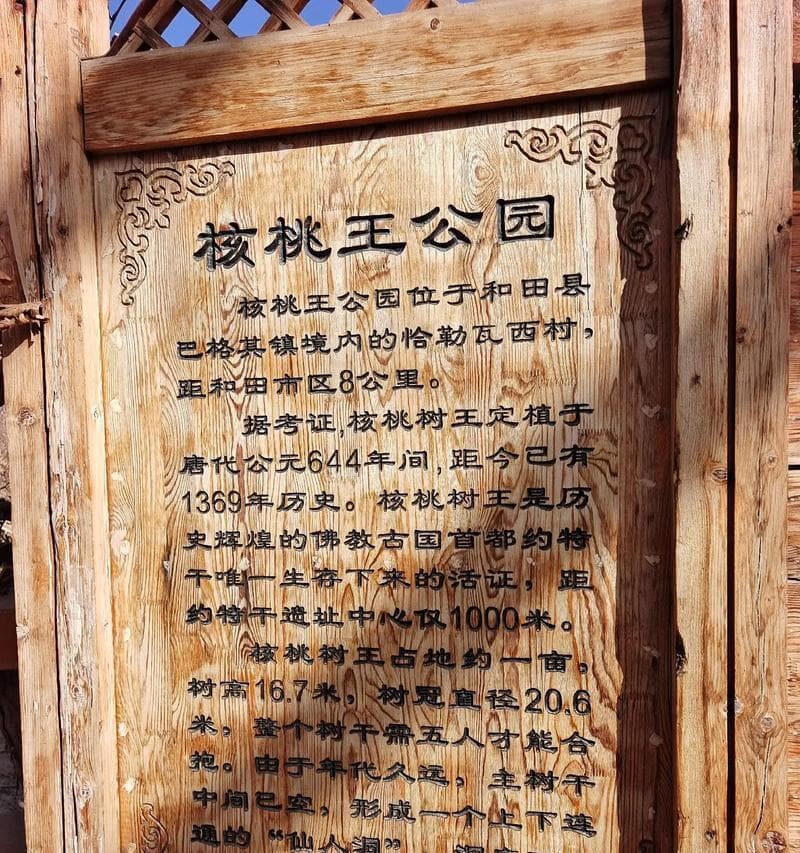 核桃王公园
核桃王公园位于和田县
巴格其镇境内的恰勒瓦西村，
距和田市区8公里。
据考证,核桃树王定植于
唐代公元644年间,距今已有
1369年历史。核桃树王是历
史辉煌的佛教古国首都约特
干唯一生存下来的活证，距
约特干遗址中心仅1000米。
核桃树王占地约一亩，
树高16.7米，树冠直径20.6
米，整个树干需五人才能合
抱。由于年代久远，主树干
中间已空，形成一个上下连
通的“仙人洞”